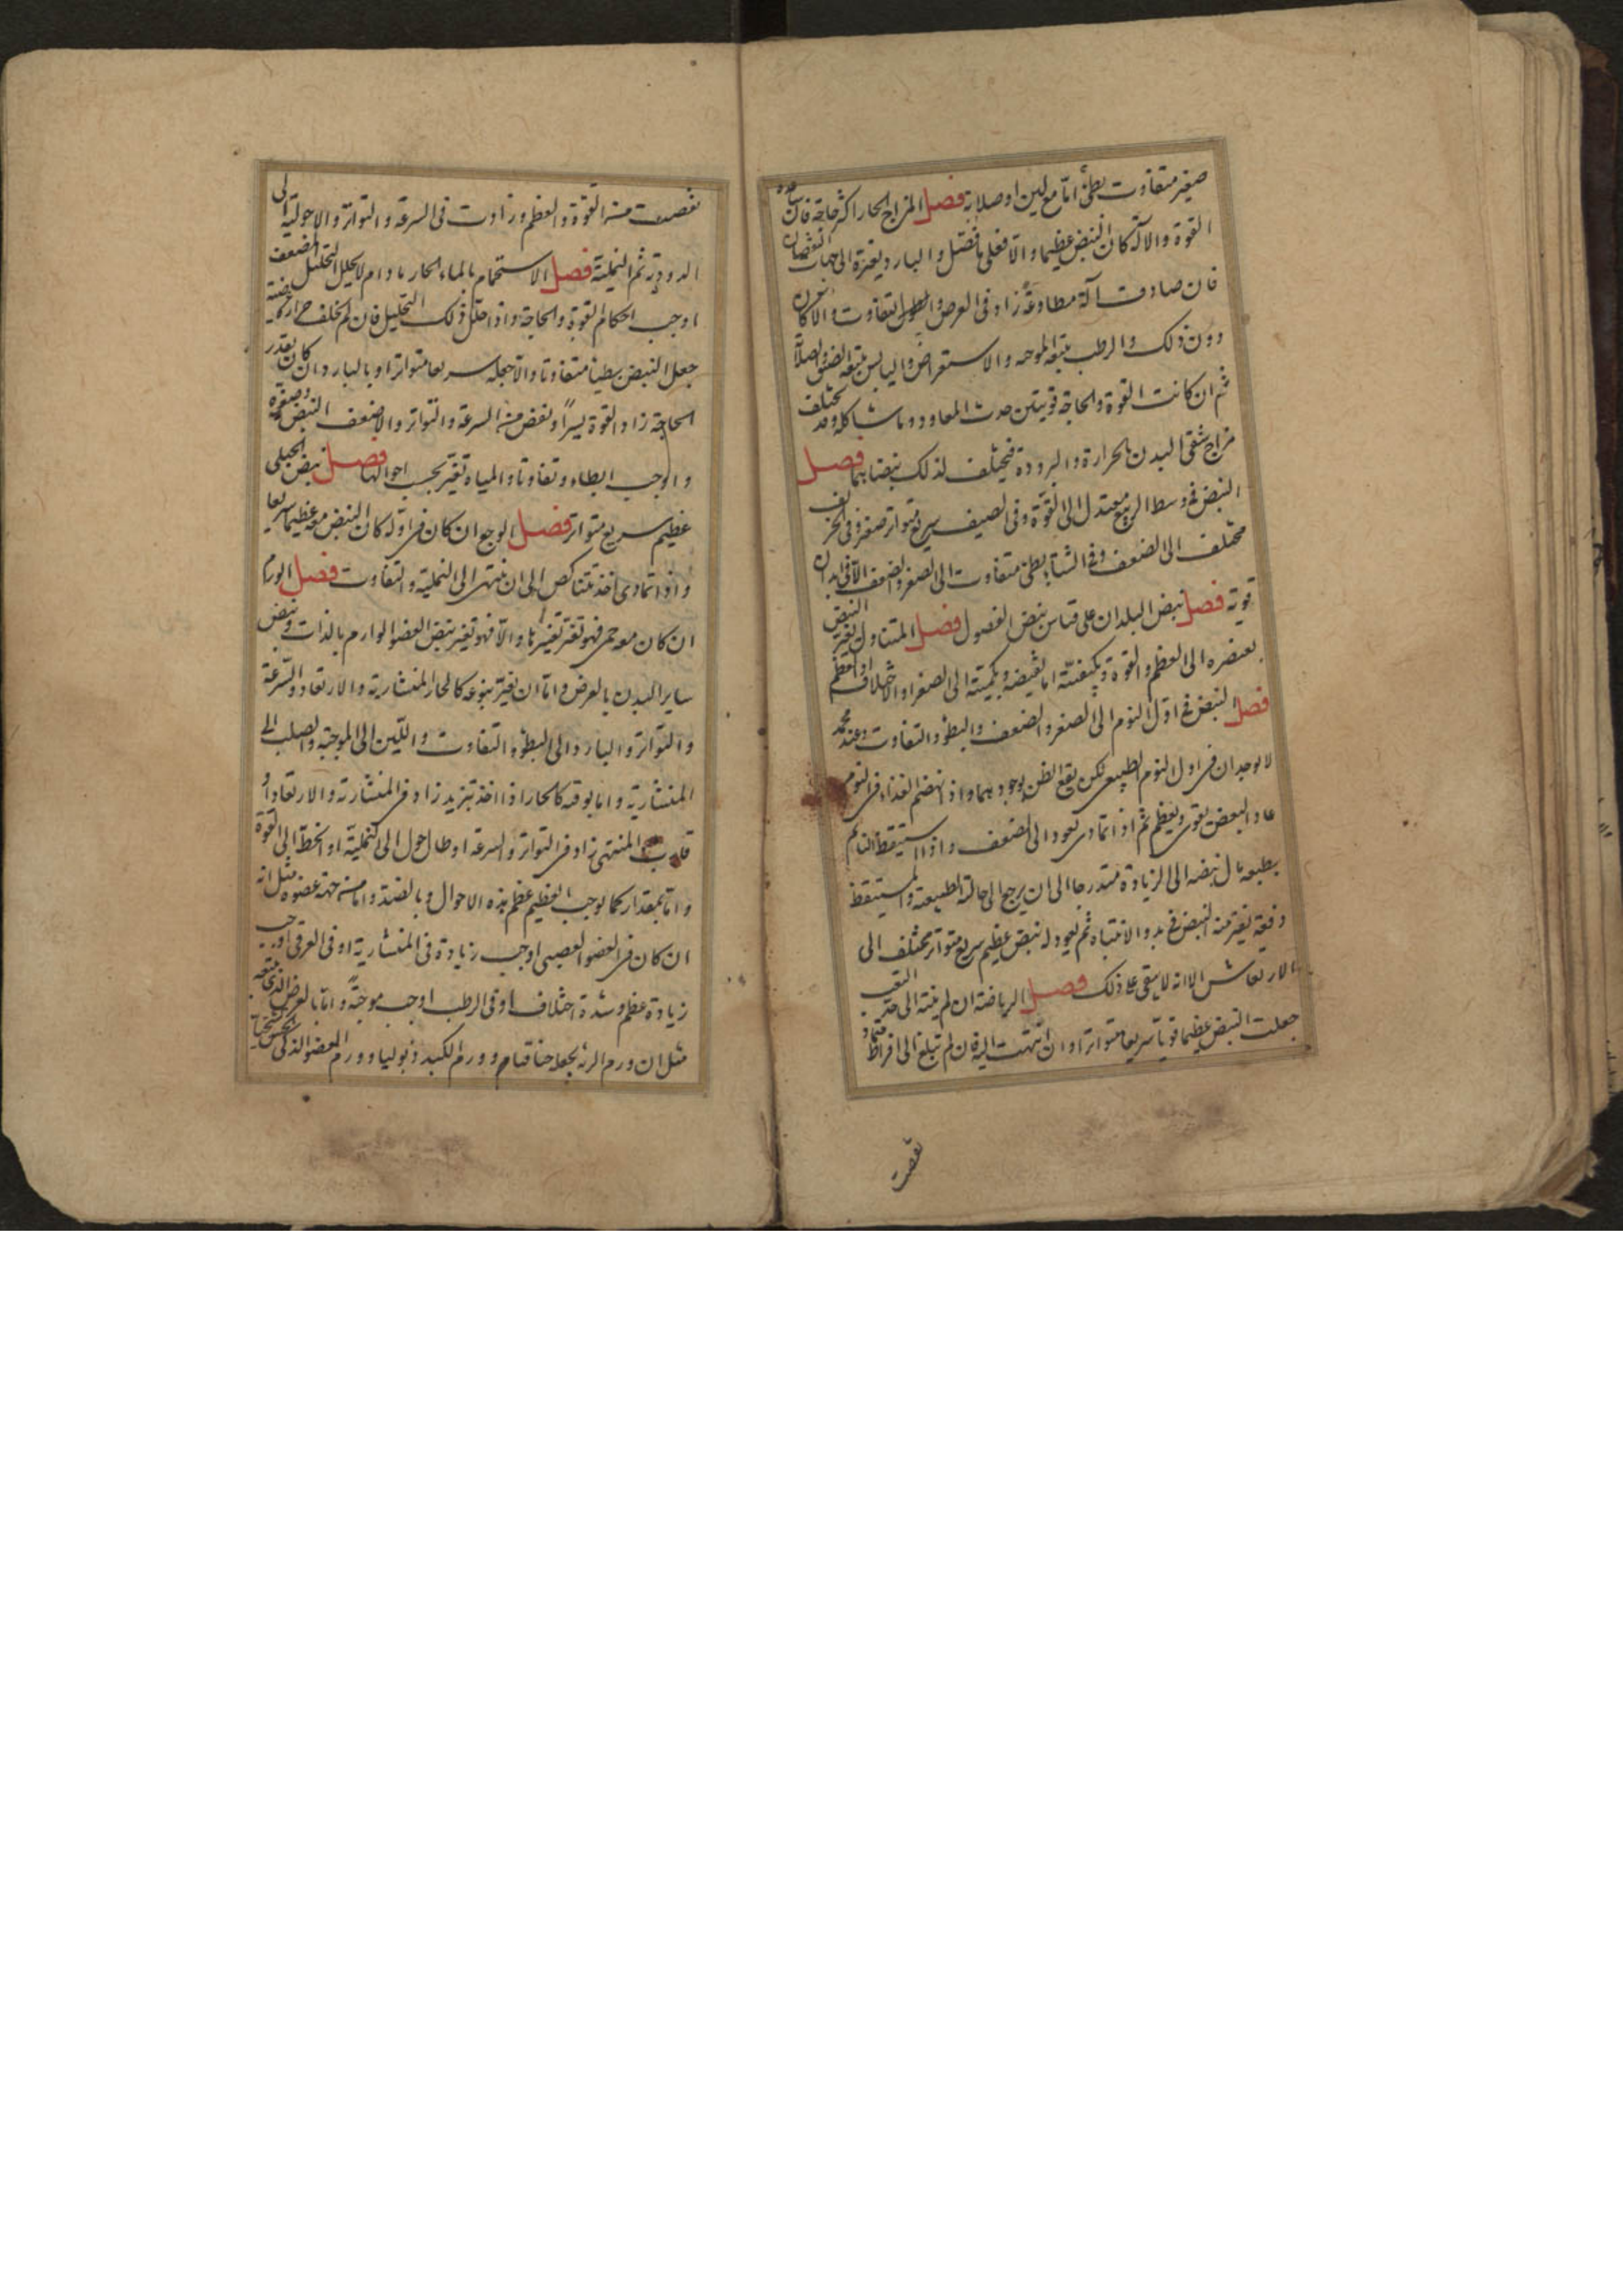 صغير متفاوت بطئ اما مع لين او صلابة فصل المزاج الحار اكثر حاجة فان ساعده
القوة والالة كان النبض عظيما والا فعلى ما فصّل والبارد يغيره الى جهات النقصان
فان صادف آلة مطاوعة زاد فى العرض والطول التفاوت والا كان
دون ذلك والرطب يتبعه الموجية والاستعراض واليابس يتبعه الضيق والصلابة
ثم ان كانت القوة والحاجة قويتين حدث المعاود وما شاكله وقد يختلف
مزاج شقى البدن بالحرارة والبرودة فيختلف لذلك نبضاهما فصل
النبض فى وسط الربيع معتدل الى القوة وفى الصيف سريع متواتر صغير وفى الخريف
مختلف الى الضعف وفى الشتاء بطئ متفاوت الى الصغر والضعف الا فى ابدان
قوية فصل نبض البلدان على قياس نبض الفصول فصل المتناول يغير النبض
بعنصره الى العظم والقوة وبكيفيته اما تقتضيه وبكميته الى الصغر او الاختلاف او العظم
فصل النبض فى اول النوم الى الصغر والضعف والبطؤ والتفاوت وعند محمد
لا يوجدان فى اول النوم الطبيعى لكن يقع الظن بوجودهما واذا انهضم الغذاء فى النوم
عاد النبض يقوى ويعظم ثم اذا تمادى يعود الى الضعف واذا استيقظ النائم
بطبعه مال نبضه الى الزيادة متدرجا الى ان يرجع الى حالته الطبيعية والمستيقظ
دفعة يغير منه النبض فى بدو الانتباه ثم يعود له نبض عظيم سريع متواتر مختلف الى
الارتعاش الا انه لا يبقى على ذلك فصل الرياضة ان لم ينته الى حد التعب
جعلت النبض عظيما قويا سريعا متواترا وان انتهت اليه فان لم تبلغ الى افراط
نقصت
نقصت من القوة والعظم وزادت فى السرعة والتواتر والا حولته الى
الدودية ثم النملية فصل الاستحمام بالماء الحار ما دام لا يحلل التحليل المضعف
اوجب احكام القوة والحاجة واذا حلل ذلك التحليل فان لم يخلف حرارة
جعل النبض بطيئا متفاوتا والا جعله سريعا متواترا وبالبارد ان كان بقدر
الحاجة زاد القوة يسيرا ونقص من السرعة والتواتر والا ضعف النبض وصغره
واوجب ابطاء وتفاوتا والمياه تغير بحسب احوالها فصل نبض الحبلى
عظيم سريع متواتر فصل الوجع ان كان فى اوله كان النبض معه عظيما سريعا
واذا تمادى اخذ يتناكص الى ان ينتهى الى النملية والتفاوت فصل الورم
ان كان معه حمى فهو تغير تغييرها والا فهو تغير نبض العضو الوارم بالذات ونبض
ساير البدن بالعرض واما ان يغير بنوعه كالحار المنشارية والارتعاد والسرعة
والتواتر والبارد والى البطؤ التفاوت واللين الى الموجية والصلب الى
المنشارية واما بوقته كالحار اذا اخذ يتزيد زاد فى المنشارية والارتعاد او
قارب المنتهى زاد فى التواتر والسرعة او طال حول الى النملية او انحط الى القوة
واما بمقداره كما يوجب العظيم عظم هذه الاحوال وبالضد واما من جهة عضوه مثل انه
ان كان فى العضو العصبى اوجب زيادة فى المنشارية او فى العرقى اوجب
زيادة عظم وشدة اختلاف او فى الرطب اوجب موجية واما بالعرض الذى يتبعه
مثل ان ورم الرئة يجعله خناقيا وورم الكبد ذبوليا وورم العضو الذكى الحس تشنجيا